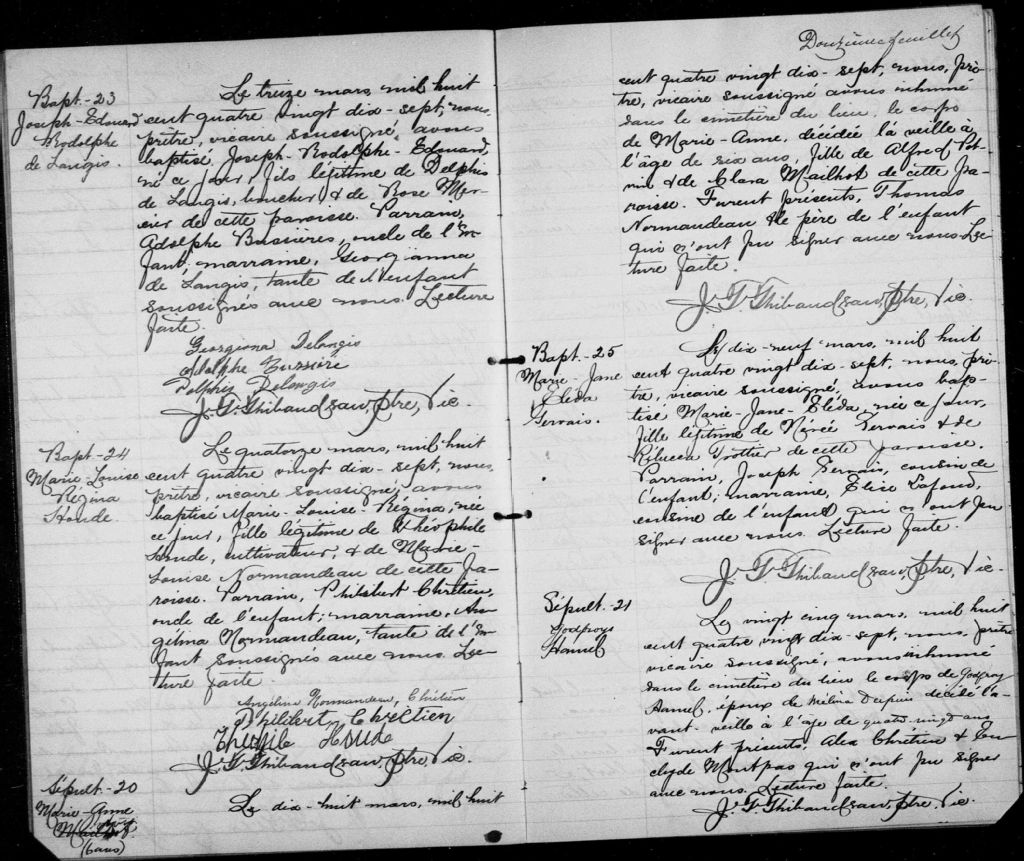 Bapt.-23
Joseph-Edouard
Rodolphe
de Langis.
Le treize mars, mil huit
cent quatre vingt dix-sept, nous,
prêtre, vicaire soussigné, avons
baptisé Joseph-Rodolphe-Edouard,
né ce jour, fils légitime de Delphis
de Langis, boucher, & de Rose Mer-
cier de cette paroisse. Parrain,
Adolphe Bussières, oncle de l'en-
fant; marraine, Georgianna
de Langis, tante de l'enfant
soussignés avec nous. Lecture
faite.
Georgiona Delangis
Adolphe Bussière
Delphis Delangis
J. T. Thibaudeau, Ptre, Vic.
Bapt-24
Marie-Louise
Régina
Houde
Le quatorze mars, mil huit
cent quatre vingt dix-sept, nous,
prêtre, vicaire soussigné, avons
baptisé Marie-Louise-Régina, née
ce jour, fille légitime de Théophile
Houde, cultivateur, & de Marie-
Louise Normandeau de cette pa-
roisse. Parrain, Philibert Chrétien,
oncle de l'enfant; marraine, An-
gélina Normandeau, tante de l'en-
fant soussignés avec nous. Lec-
ture faite.
Angélina Normandeau, Chrétien
Philibert Chrétien
Houde
J. T. Thibaudeau, Ptre, Vic.
Sépult-20
Marie-Anne
(6 ans)
Le dix-huit mars, mil huit
Douzième feuillet
cent quatre vingt dix-sept, nous, prê-
tre, vicaire soussigné avons inhumé
dans le cimetière du lieu, le corps
de Marie-Anne, décédée la veille à
l'âge de six ans, fille de Alfred Pot-
vin & de Clara Mailhot de cette pa-
roisse. Furent présents, Thomas
Normandeau & le père de l'enfant
qui n'ont pu signer avec nous. Lec-
ture faite.
J. T. Thibaudeau, Ptre, Vic.
Bapt.-25
Marie-Jane
Eléda
Gervais.
Le dix-neuf mars, mil huit
cent quatre vingt dix-sept, nous, prê-
tre, vicaire soussigné, avons bap-
tisé Marie-Jane-Eléda, née ce jour,
fille légitime de Nérée Gervais & de
Rébecca Trottier de cette paroisse.
Parrain, Joseph Gervais, cousin de
l'enfant; marraine, Elise Lafond,
cousine de l'enfant qui n'ont pu
signer avec nous. Lecture faite.
J. T. Thibaudeau, Ptre, Vic.
Sépult-21
Godfroy
Hamel
Le vingt cinq mars, mil huit
cent quatre vingt dix-sept, nous, prêtre
vicaire soussigné, avons inhumé
dans le cimetière du lieu le corps de Godfroy
Hamel, époux de Mélina Dupuis décédé l'a-
vant-veille à l'âge de quatre vingt ans
Furent présents, Alex Chrétien &
Montpas qui n'ont pu signer
avec nous. Lecture faite.
J. T. Thibaudeau, Ptre, Vic.